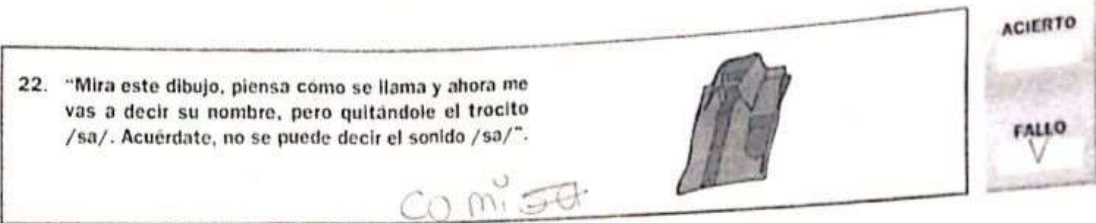 22. "Mira este dibujo, piensa cómo se llama y ahora me
vas a decir su nombre, pero quitándole el trocito
/sa/. Acuérdate, no se puede decir el sonido /sa/".
comisa
ACIERTO
FALLO